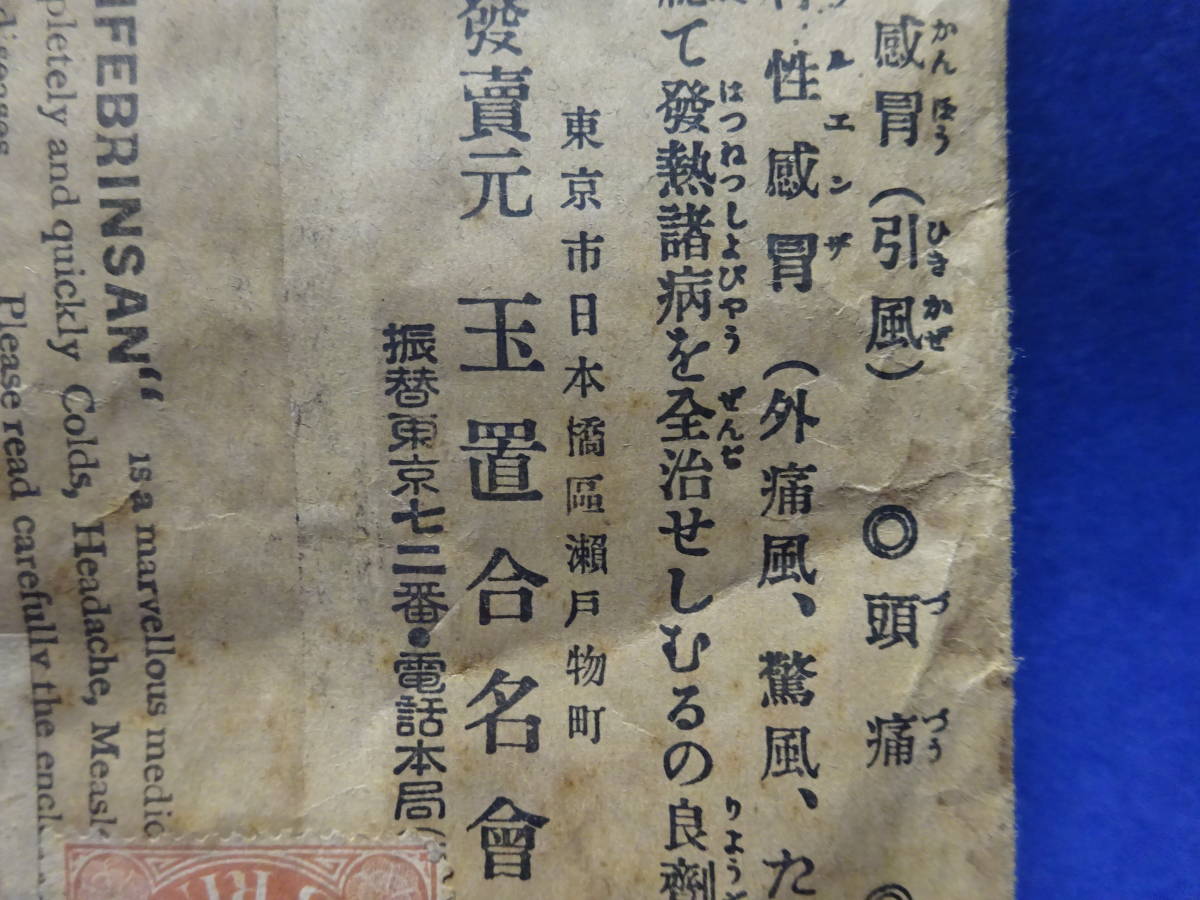 感冒（引風） ◎頭痛
性感冒（外痛風、驚風、た
て發熱諸病を全治せしむるの良劑
東京市日本橋區瀨戸物町
發賣元 玉置合名會
振替東京七二番●電話本局
IFEBRINSAN“ is a marvellous medic
pletely and quickly Colds, Headache, Measl
diseases
Please read carefully the encl